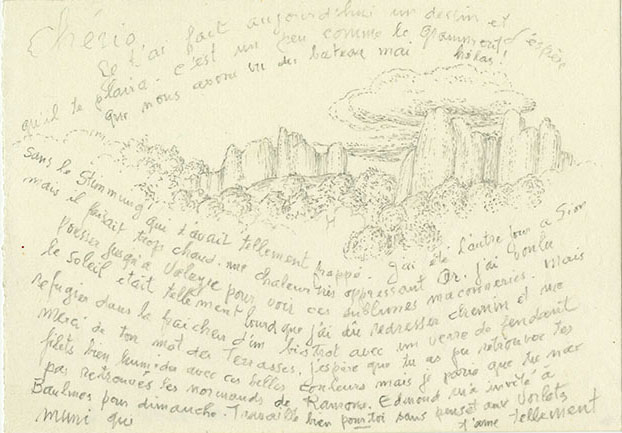 Chério
Je t'ai fait aujourd'hui un dessin et j'espère
qu'il te plaira. c'est un peu comme le grammont
que nous avons vu du bateau mai hélas!
sans le Stimmung qui t'avait tellement frappé. j'ai été l'autre jour a Sion
mais il faisait trop chaud. une chaleur très oppressant Or. j'ai voulu
pousser jusqu'à Valeyre pour voir ces sublimes maçonneries. Mais
le soleil était tellement lourd que j'ai dû redresser chemin et me
refugier dans la fraicheur d'un bistrot avec un verre de fendant
merci de ton mot des Terrasses. j'espère que tu as pu retrouver tes
filets bien humides avec ces belles couleurs mais je parie que tu n'as
pas retrouvés les normands de Ramona. Edmond m'a invité a
Baulmes pour dimanche. Travaille bien pour toi sans penser aux
muni qui t'aime tellement